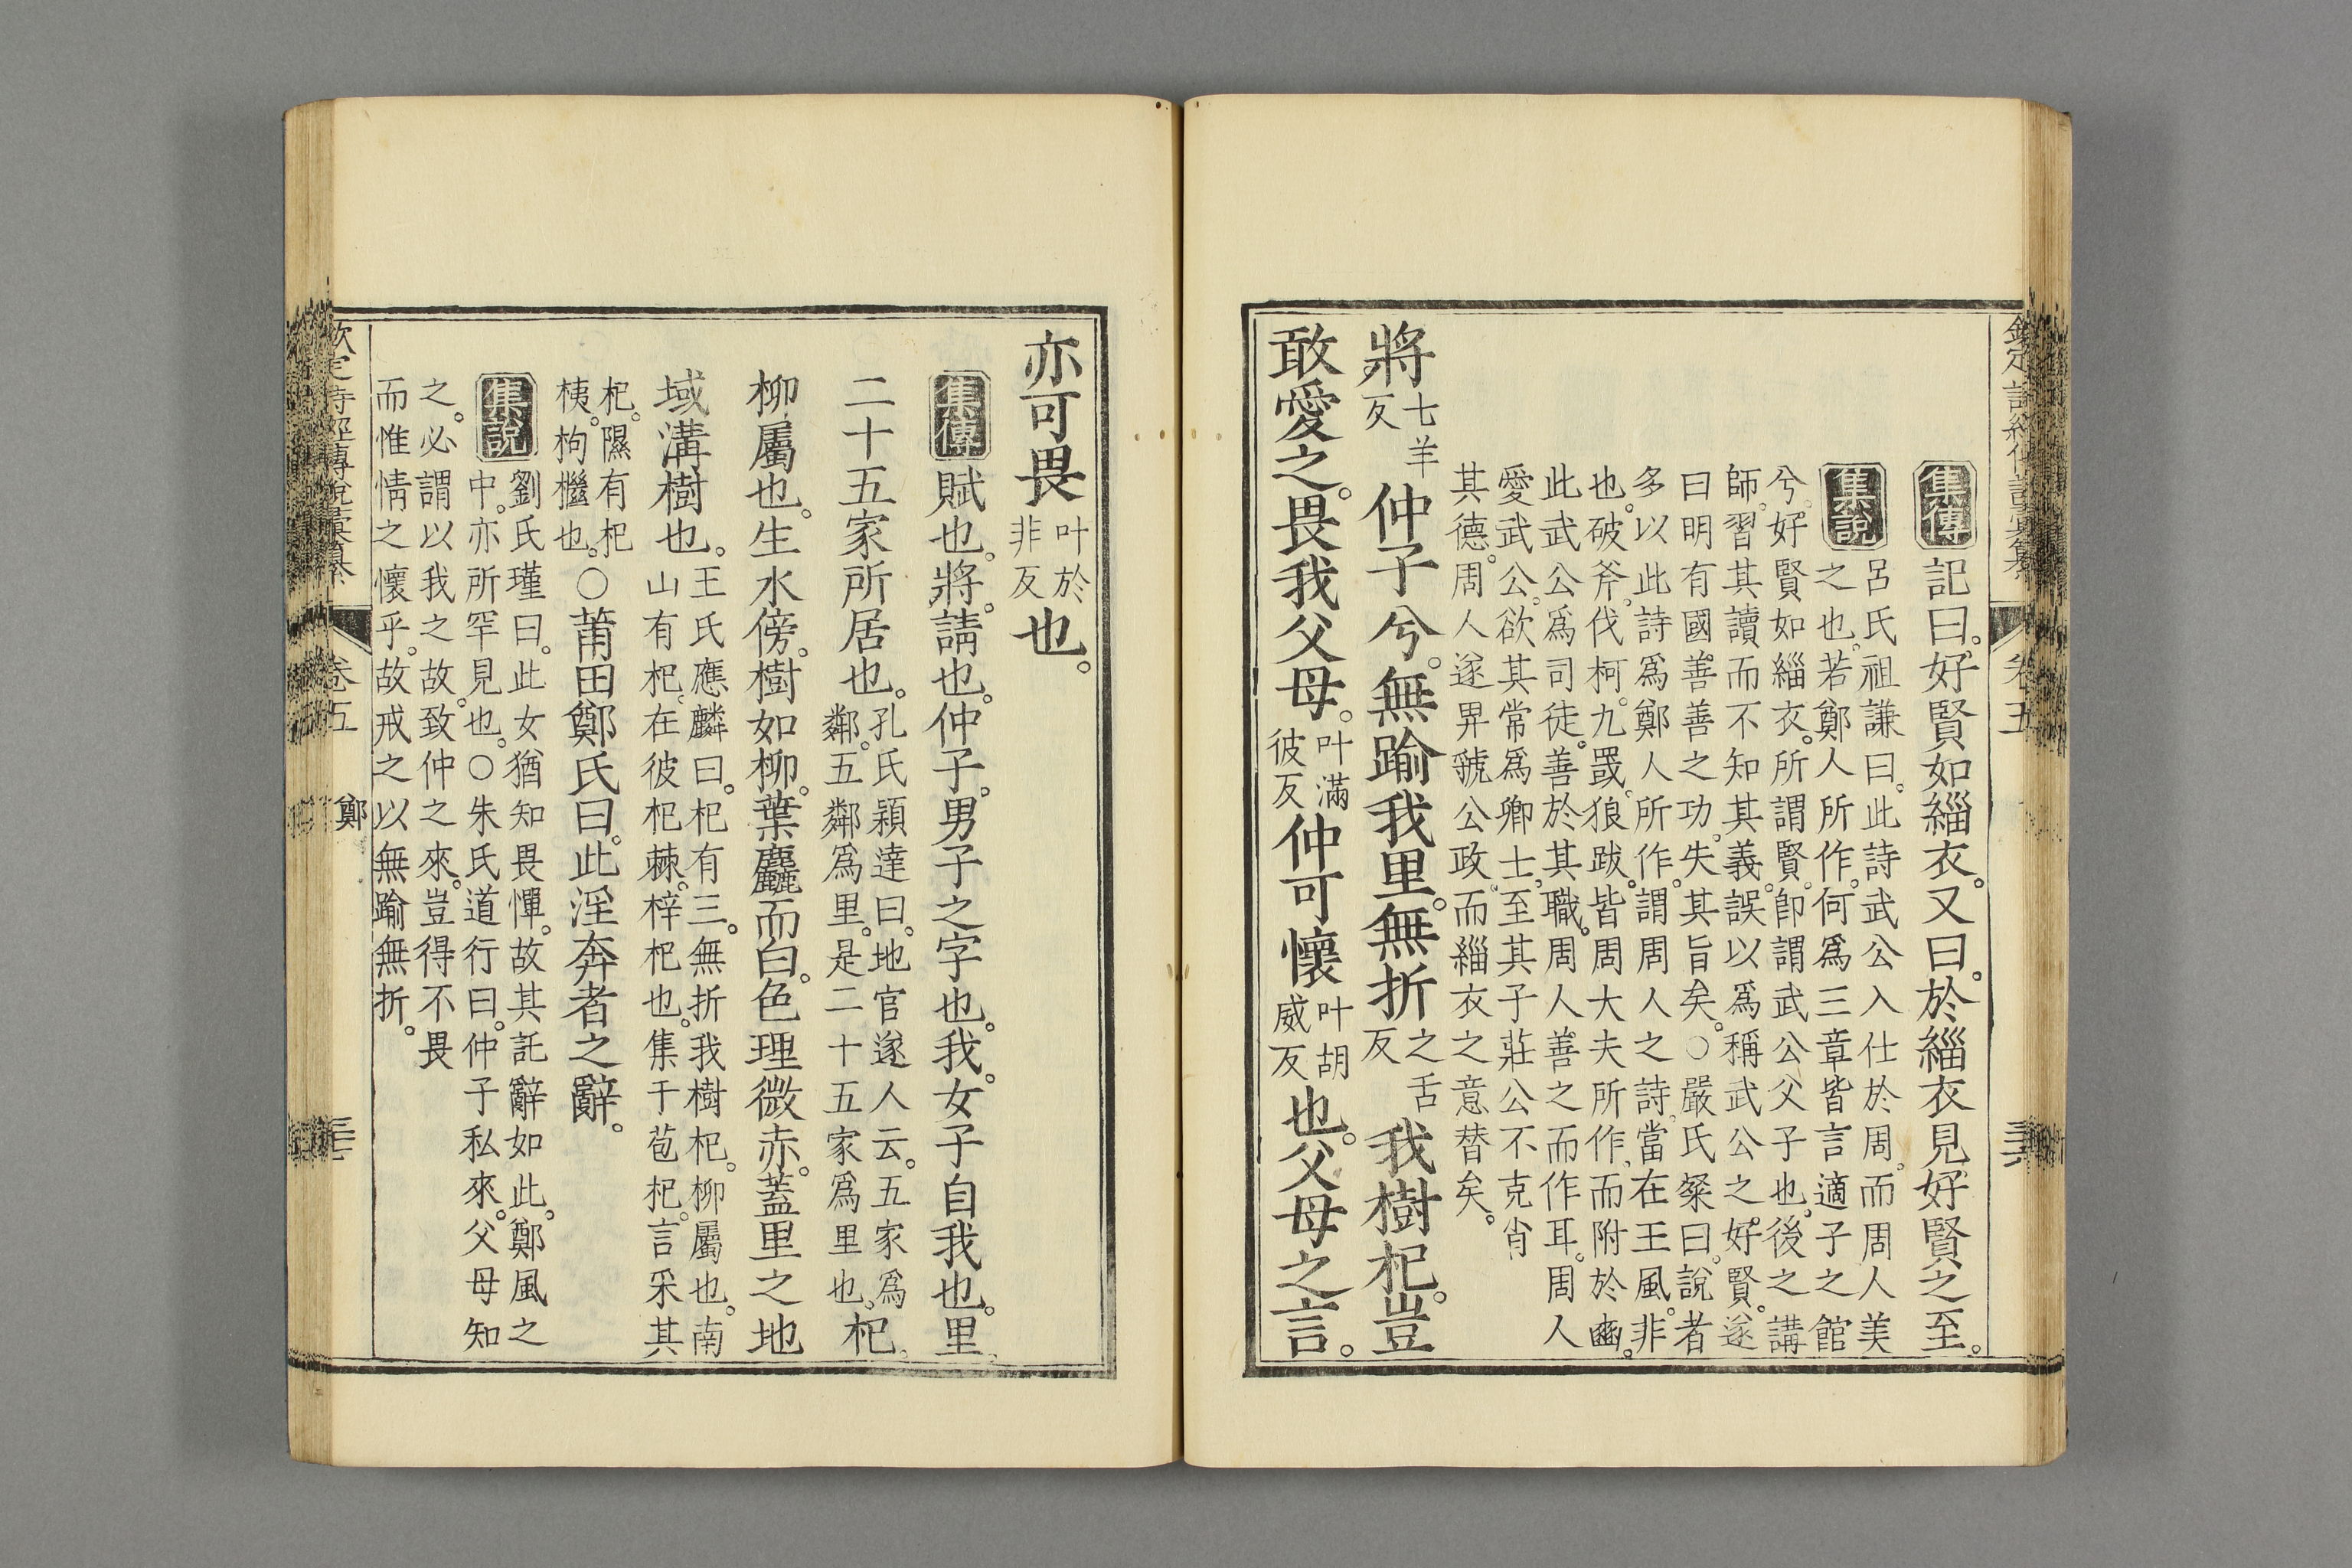 欽定詩經傳說彙纂 卷五
集傳 記曰。好賢如緇衣。又曰。於緇衣見好賢之至。
集說 呂氏祖謙曰。此詩武公入仕於周。而周人美
之也。若鄭人所作。何爲三章皆言適子之館
兮。好賢如緇衣。所謂賢。卽謂武公父子也。後之講
師。習其讀而不知其義。誤以爲稱武公之好賢。遂
曰明有國善善之功。失其旨矣。○嚴氏粲曰。說者
多以此詩爲鄭人所作。謂周人之詩。當在王風。非
也。破斧。伐柯。九罭。狼跋。皆周大夫所作。而附於豳。
此武公爲司徒。善於其職。周人善之而作耳。周人
愛武公。欲其常爲卿士。至其子莊公不克肖
其德。周人遂畀虢公政。而緇衣之意替矣。
將七羊反仲子兮。無踰我里。無折之舌反我樹杞。豈
敢愛之。畏我父母。叶滿彼反仲可懷叶胡威反也。父母之言。
亦可畏叶於非反也。
集傳 賦也。將。請也。仲子。男子之字也。我。女子自我也。里。
二十五家所居也。孔氏穎達曰。地官遂人云。五家爲鄰。五鄰爲里。是二十五家爲里也。杞。
柳屬也。生水傍。樹如柳。葉麤而白。色理微赤。蓋里之地
域溝樹也。王氏應麟曰。杞有三。無折我樹杞。柳屬也。南山有杞。在彼杞棘。梓杞也。集于苞杞。言采其
杞。隰有杞桋。枸檵也。○莆田鄭氏曰。此淫奔者之辭。
集說 劉氏瑾曰。此女猶知畏憚。故其託辭如此。鄭風之
中。亦所罕見也。○朱氏道行曰。仲子私來。父母知
之。必謂以我之故。致仲之來。豈得不畏
而惟情之懷乎。故戒之以無踰無折。
欽定詩經傳說彙纂 卷五 鄭